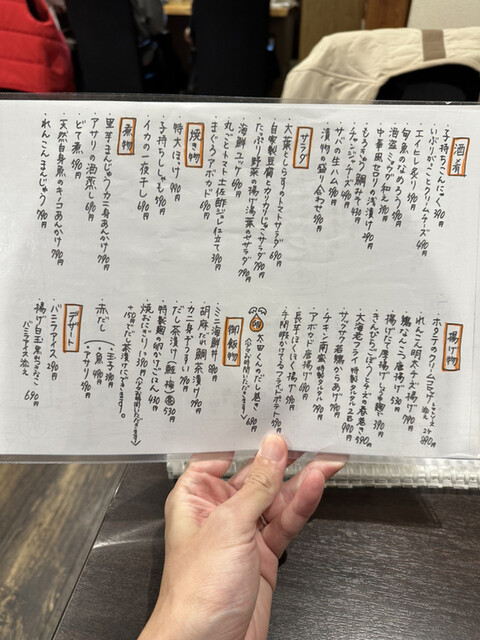 酒肴
・子持ちこんにゃく 390円
・いぶりがっことクリームチーズ 490円
・エイヒレ炙り 590円
・旬魚のなめろう 590円
・海鮮ミツウダ和え 390円
・中華風セロリの浅漬け 390円
・もろきゅうの鯛みそ 430円
・チャンジャチーズ 490円
・サバの生ハム 590円
・漬物の盛り合わせ 590円
サラダ
・大葉としらすのトマトサラダ 690円
・自家製豆腐とカリカリじゃこサラダ 690円
・たっぷり野菜と揚げ湯葉のゼサラダ 790円
・海鮮ユッケ 690円
・丸ごとトマト土佐酢ジュレ仕立て 390円
・まぐろアボカド 690円
焼き物
・特大ほっけ 990円
・子持ちししゃも 590円
・イカの一夜干し 690円
煮物
・里芋まんじゅうカニ身あんかけ 790円
・アサリの酒蒸し 690円
・どて煮 590円
・天然白身魚のキノコあんかけ 790円
・れんこんまんじゅう 790円
揚げ物
・ホタテのクリームコロッケチーズ
・れんこん明太チーズ揚げ 790円
・鶏なんこつ唐揚げ 590円
・揚げたて厚揚げしょうゆ麹で 390円
・きんぴらごぼうとチーズの春巻き 590円
・大海老フライ特製タルタル2尾 990円
・サックサク若鶏からあげ 790円
・チキン南蛮特製タルタル 790円
・アボカド唐揚げ 690円
・長芋ほくほく揚げ 590円
・手間暇かけてるフライドポテト 590円
卵
・太田くんのだし巻き 690円
(少々お時間いただきます)
御飯物
・ミニ海鮮丼 890円
・胡麻だれ鯛茶漬け 790円
・カニ身ぞうすい 790円
・だし茶漬け(鮭・梅) 各530円
・特製麹の卵かけごはん 430円
・焼おにぎり 190円(少々お時間いただきます)
+150円でだし茶漬けにできます。
・赤だし
・玉子焼
・魚 490円
・アサリ
デザート
・バニラアイス 290円
・揚げ白玉黒みつきなこ
バニラアイス添え 690円